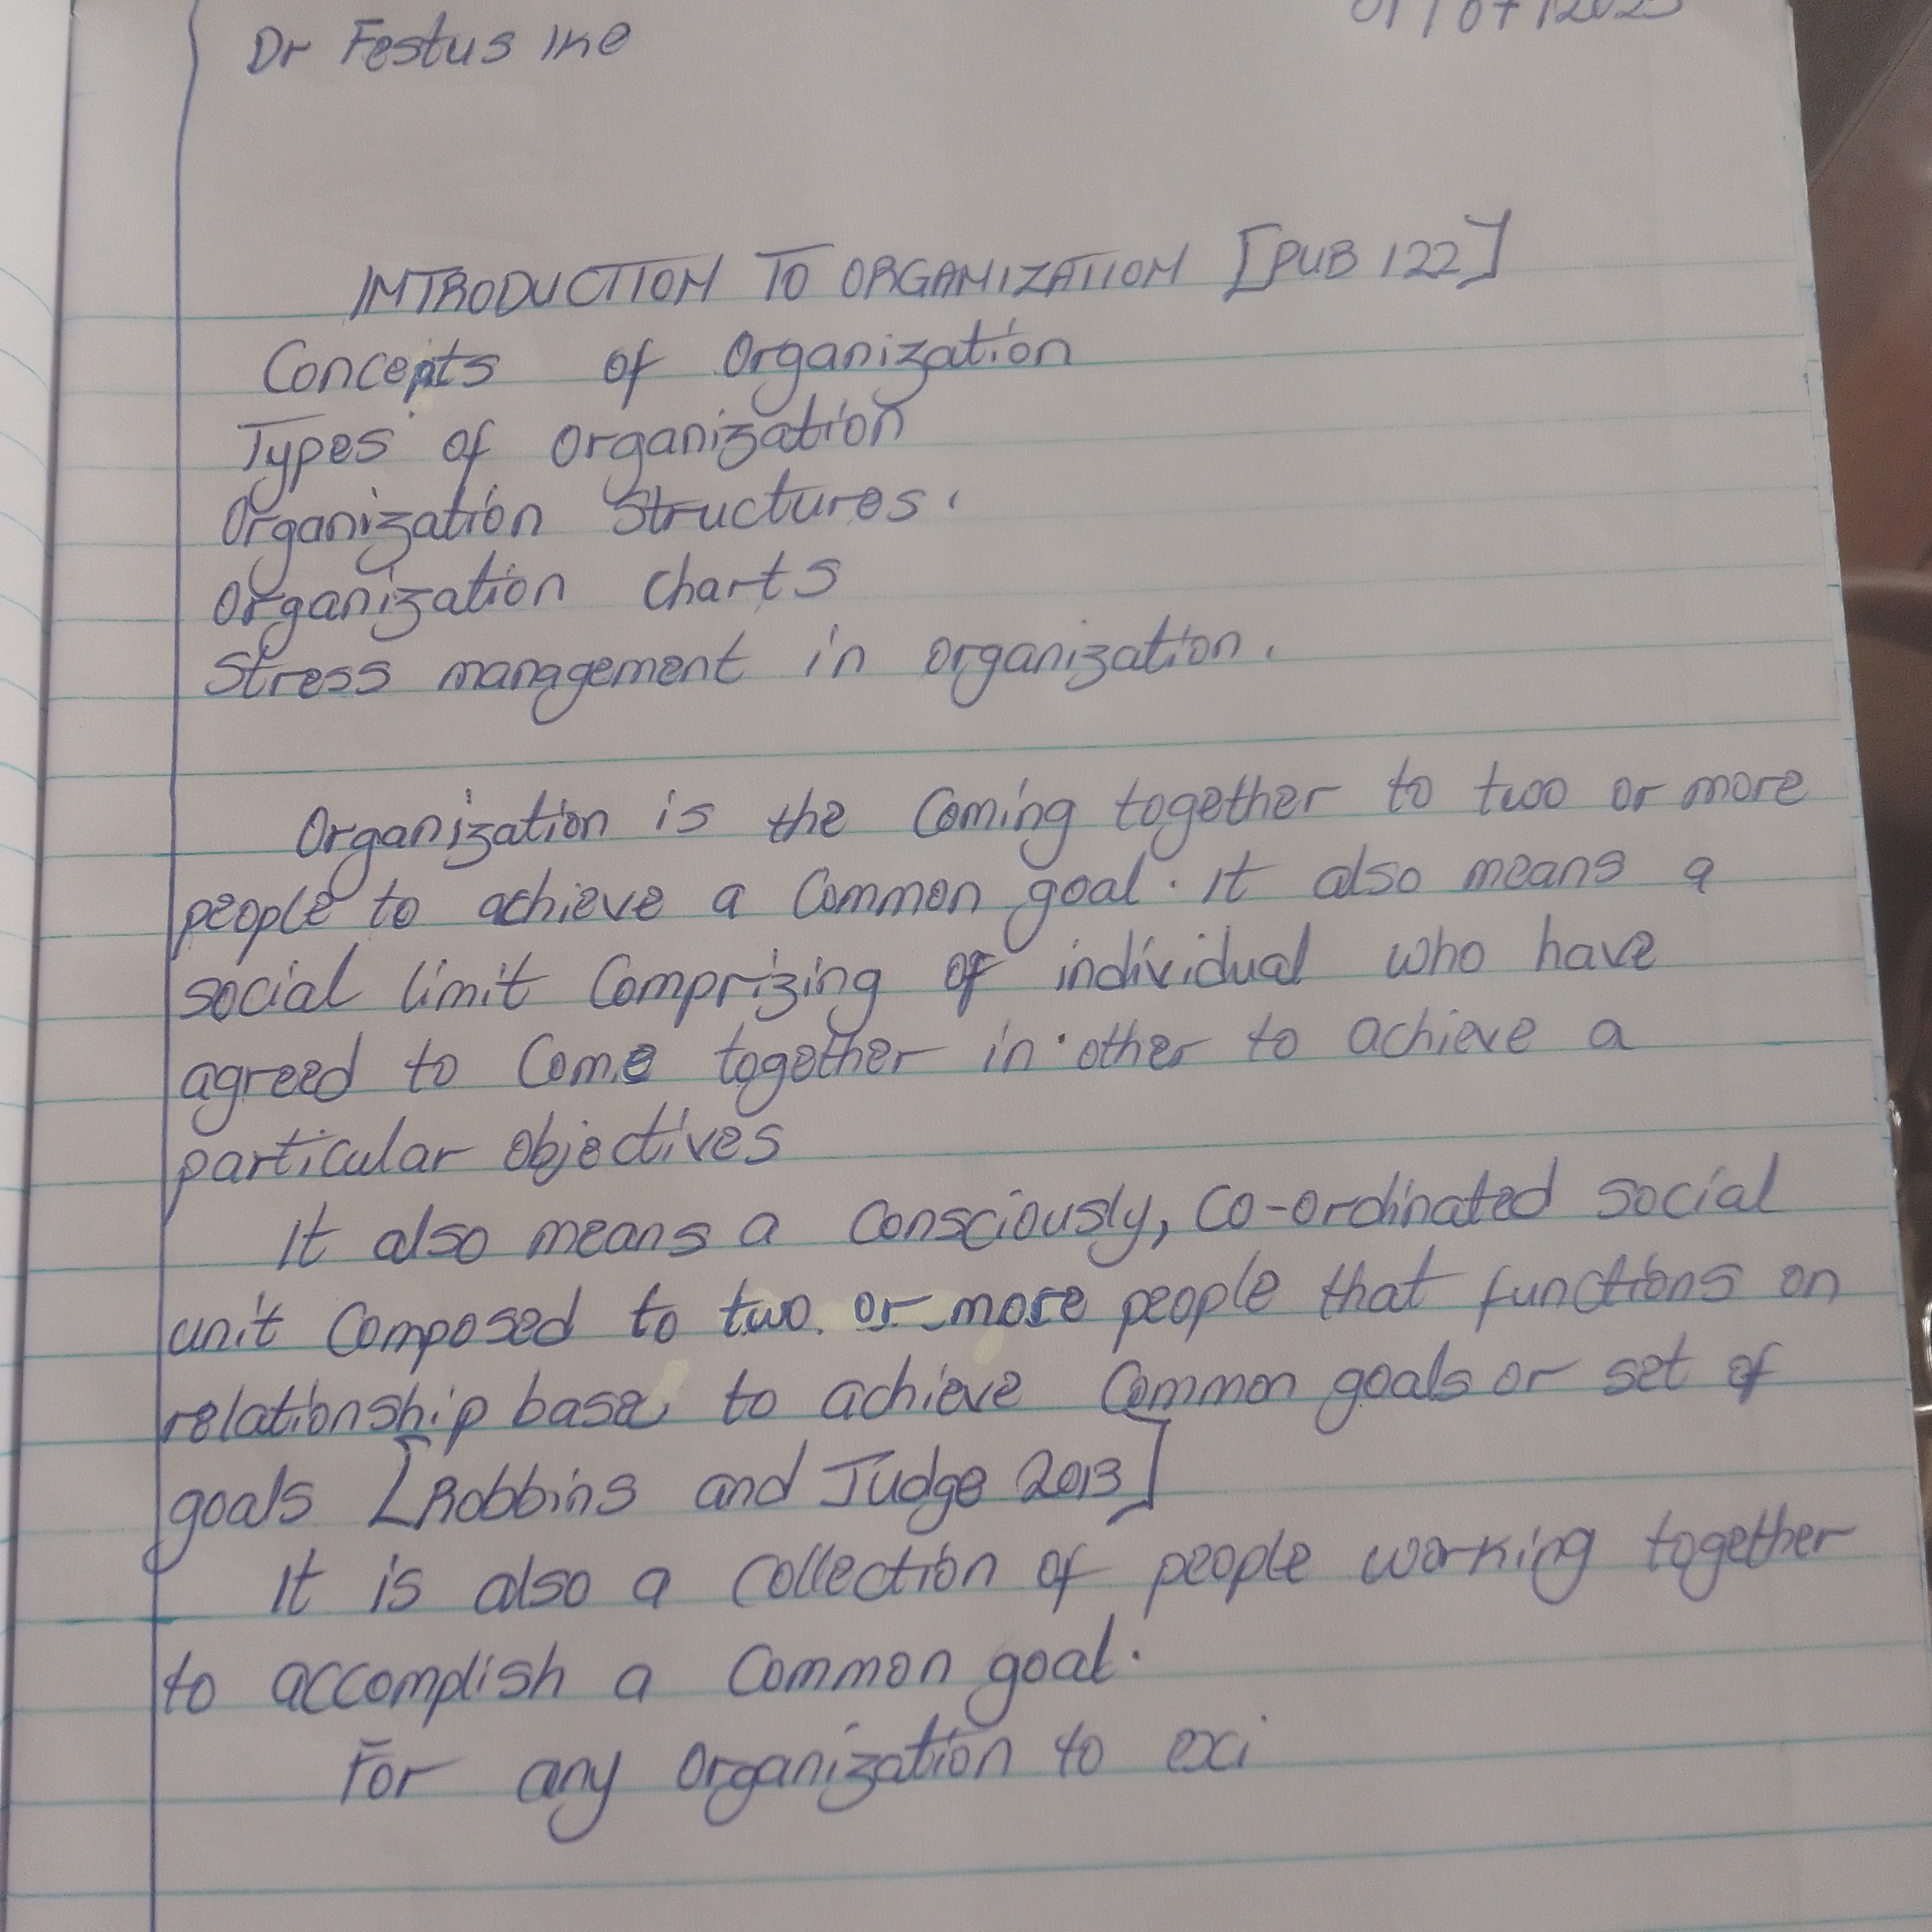 Dr Festus Ike
INTRODUCTION TO ORGANIZATION [PUB 122]
Concepts of Organization
Types of Organization
Organization Structures.
Organization charts
Stress management in organization.
Organization is the Coming together to two or more
people to achieve a Common goal. it also means a
social limit Comprizing of individual who have
agreed to Come together in other to achieve a
particular objectives
It also means a Consciously, co-ordinated social
unit Composed to two or more people that functions on
relationship base to achieve Common goals or set of
goals [Robbins and Judge 2013]
It is also a collection of people working together
to accomplish a Common goal.
For any organization to exi